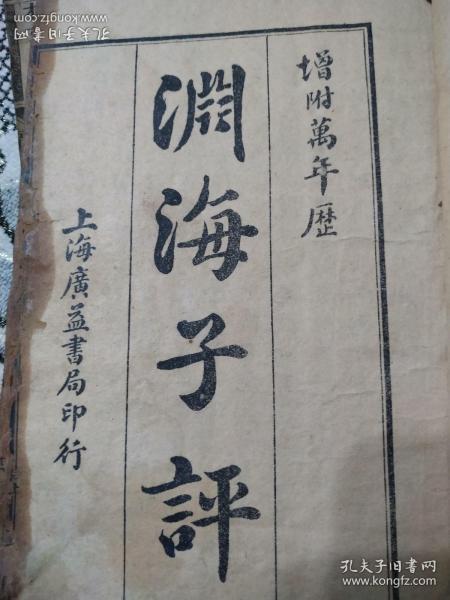 增附萬年歷
淵海子評
上海廣益書局印行
孔夫子旧书网
www.kongfz.com
孔夫子旧书网
www.kongfz.com